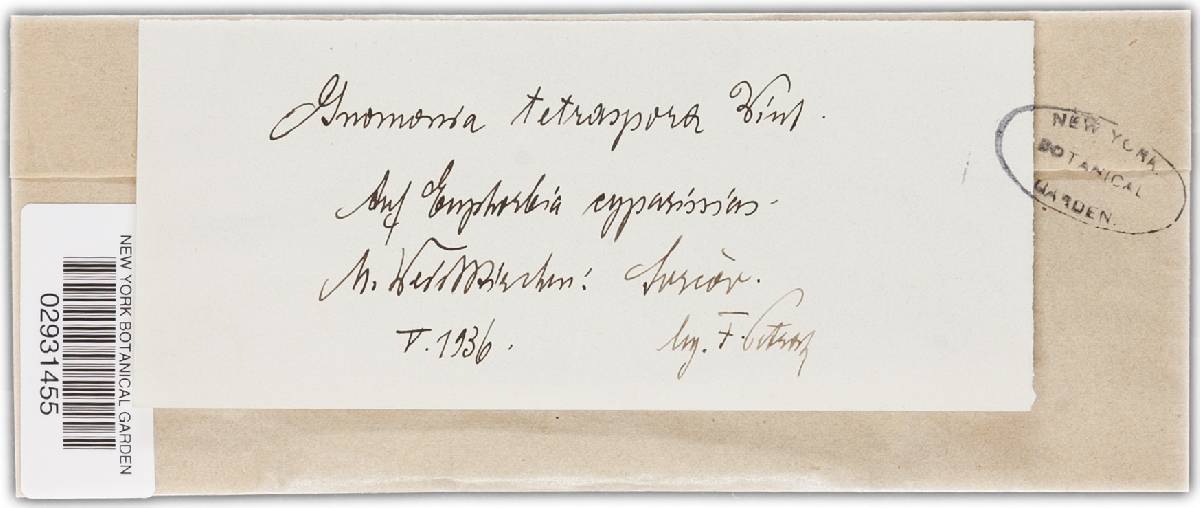 Gnomonia tetraspora Wint.
Auf Euphorbia cyparissias.
M. Weißkirchen:
V. 1936. leg. F. Petrak
NEW YORK
BOTANICAL
GARDEN.
NEW YORK BOTANICAL GARDEN
02931455